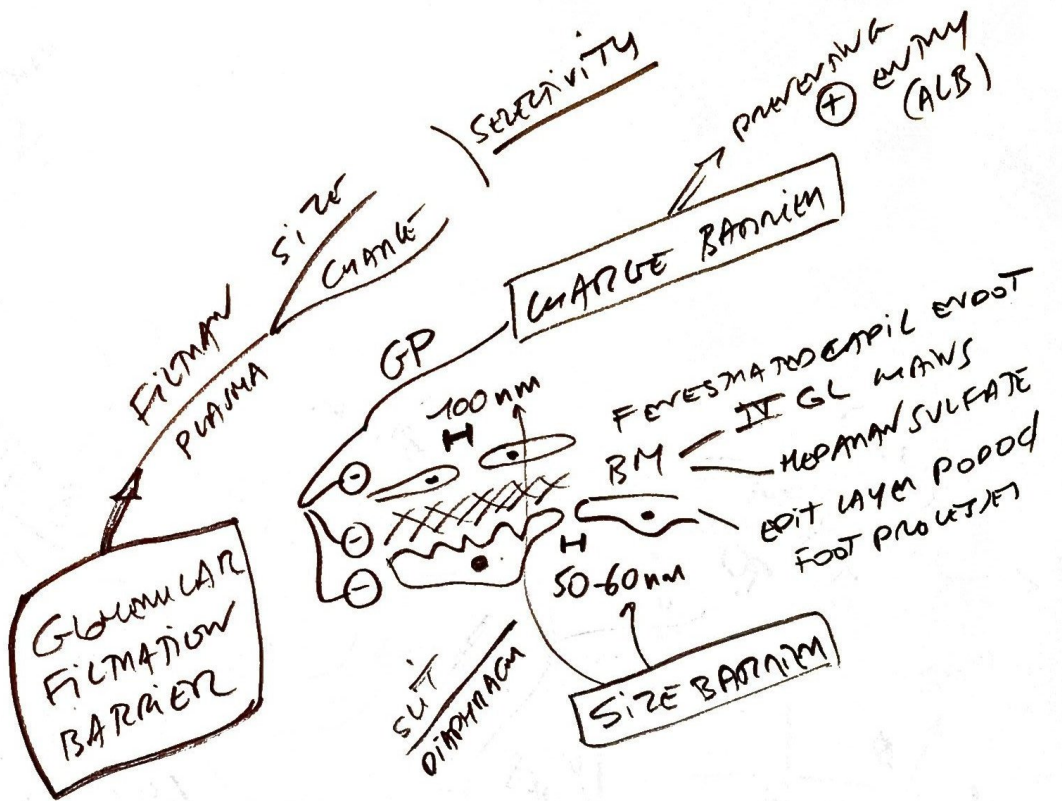 GLOMERULAR
FILTRATION
BARRIER
FILTRAR
PLASMA
SIZE
CHARGE
SELECTIVITY
GP
CHARGE BARRIER
PREVENTING
⊕ ENTRY
(ALB)
100 nm
FENESTRATED CAPIL ENDOT
BM
IV GL CHAINS
HEPARAN SULFATE
EPIT LAYER PODOC
FOOT PROCESSES
⊖
⊖
⊖
50-60 nm
SLIT
DIAPHRAGM
SIZE BARRIER